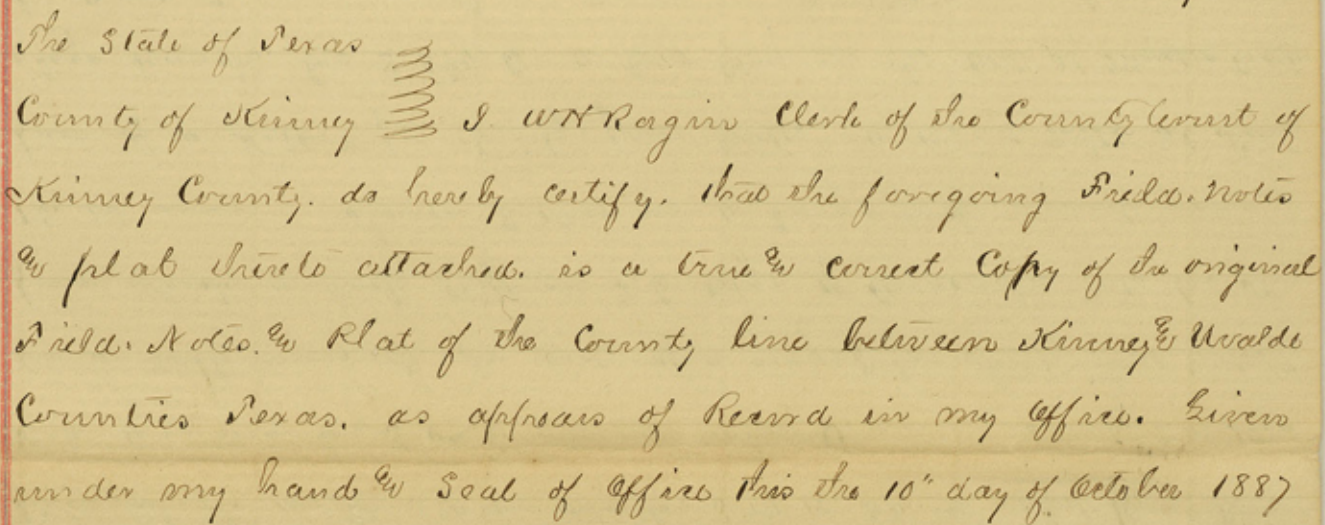 The State of Texas
County of Kinney I W H Ragin Clerk of the County Court of
Kinney County. do hereby certify. that the foregoing Field. Notes
& plat thereto attached. is a true & correct Copy of the original
Field. Notes. & Plat of the County line between Kinney & Uvalde
Counties Texas. as appears of Record in my office. Given
under my hand & Seal of office this the 10" day of October 1887